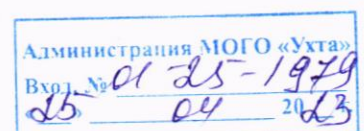 Администрация МОГО «Ухта»
Вход. № 01-25-1979
«25» 04 2023